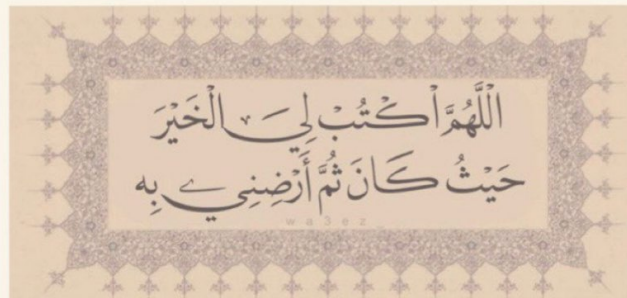 اللَّهُمَّ اكْتُبْ لِيَ الْخَيْرَ
حَيْثُ كَانَ ثُمَّ أَرْضِنِي بِه
wa3ez_